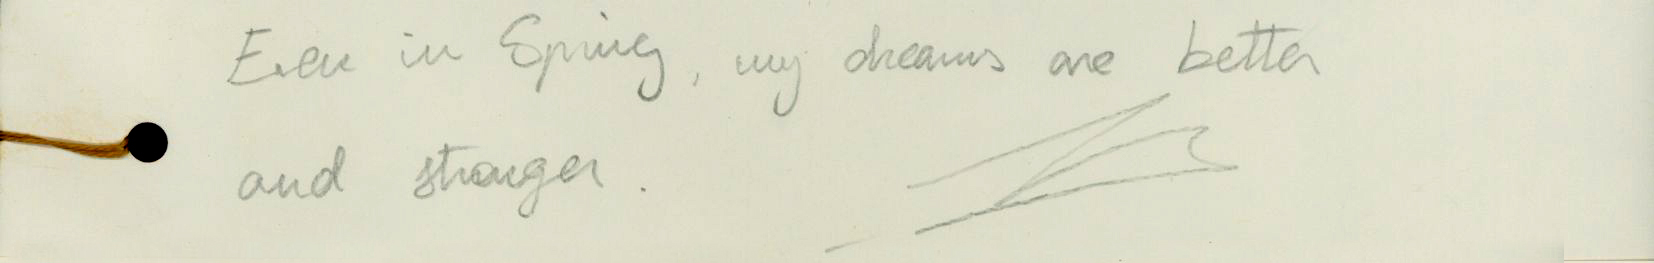 Even in Spring, my dreams are better
and stronger.